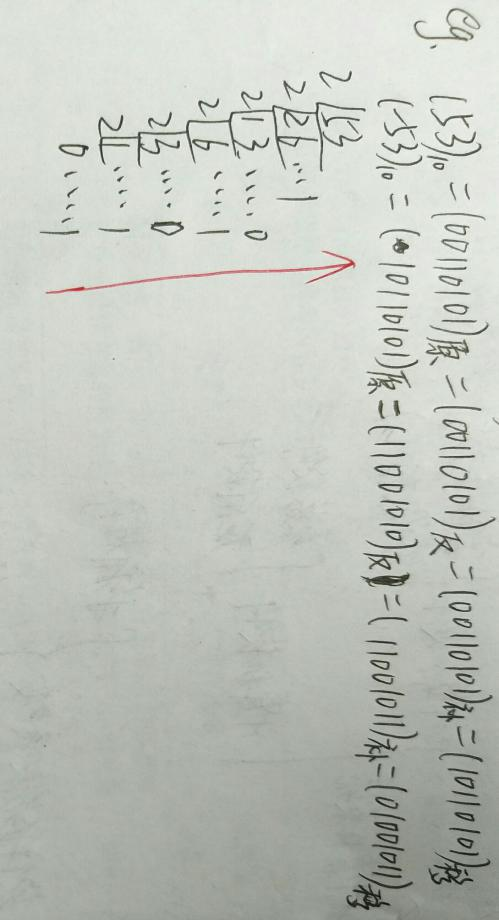 eg.
(53)10 = (00110101)原 = (00110101)反 = (00110101)补 = (10110101)移
(-53)10 = (10110101)原 = (11001010)反 = (11001011)补 = (01001011)移
2 53
2 26 ... 1
2 13 .... 0
2 6 .... 1
2 3 .... 0
2 1 .... 1
0 ..... 1